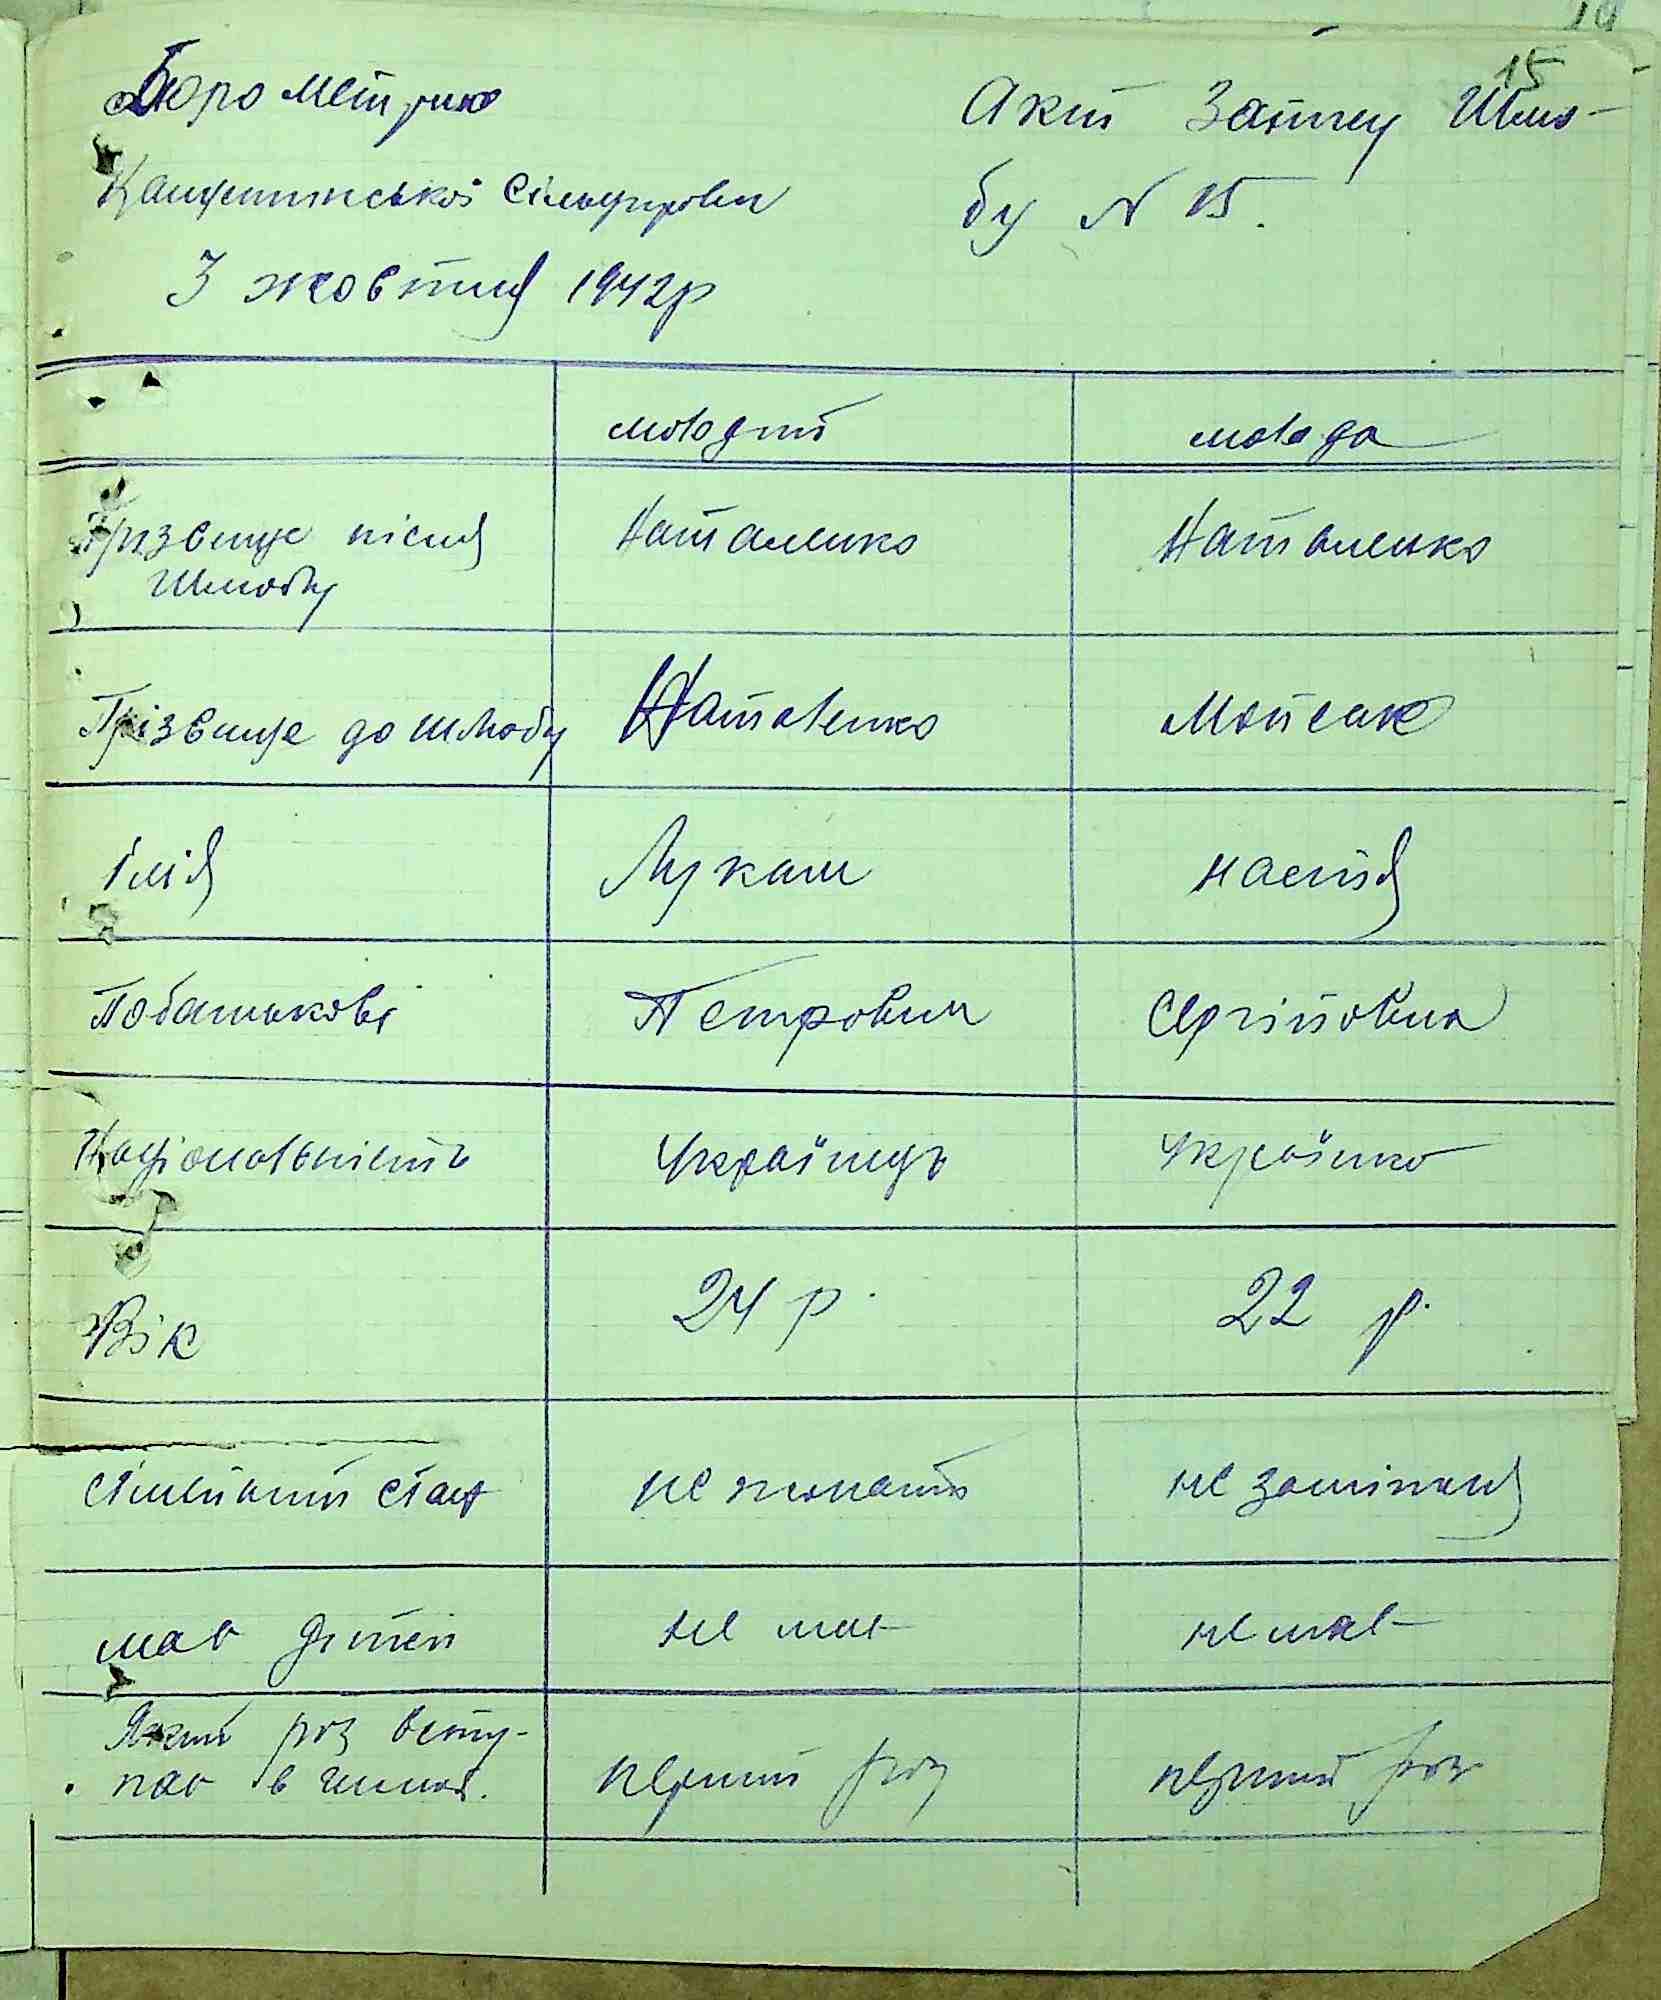 15
Бюро Метрик
Акт Запису Шлю-
сільуправи
бу N 15.
3 жовтня 1942р
молодий молода
Прізвище після Наталенко Наталенко
Шлюбу
Прізвище до шлюбу Наталенко Мойсик
Імія Лукаш Настя
Побатькові Петрович Сергіївна
Національність Українець Українка
Вік 24 р. 22 р.
Сімейний стан не жонатий не заміжня
має дітей не має не має
Який раз всту-
пає в шлюб. перший раз перший раз